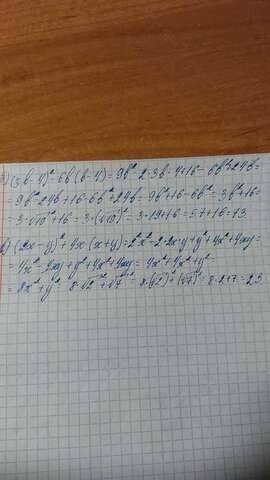 (3b-4)²-6b(b-4)=9b²-2·3b·4+16-6b²+24b=
=9b²-24b+16-6b²+24b=9b²+16-6b²=3b²+16=
б) (2x-y)²+4x(x+y)=2²x²-2·2x·y+y²+4x²+4xy=
=4x²-4xy+y²+4x²+4xy=4x²+4x²+y²=
=8x²+y²=8·√2²+√7²=8·(√2)²+(√7)²=8·2+7=23